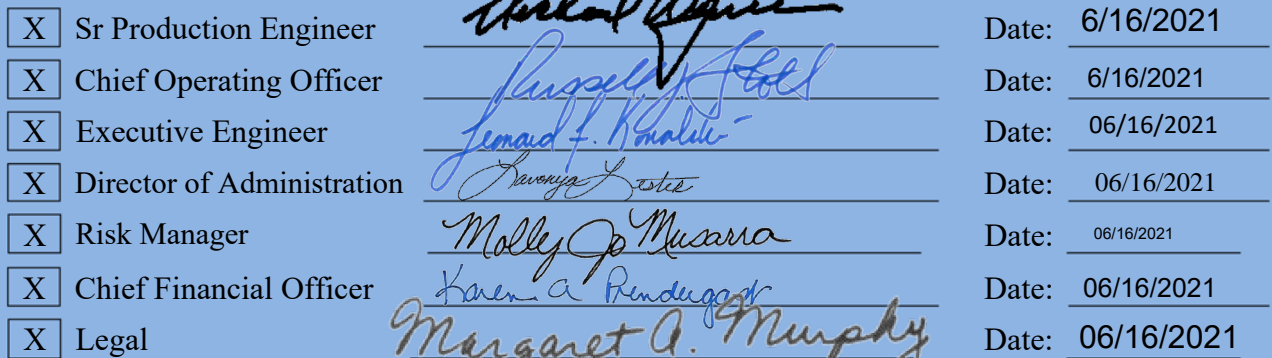 X Sr Production Engineer Date: 6/16/2021
X Chief Operating Officer Russell J Stoll Date: 6/16/2021
X Executive Engineer Leonard F. Kowalski Date: 06/16/2021
X Director of Administration Lavonya Lester Date: 06/16/2021
X Risk Manager Molly Jo Musarra Date: 06/16/2021
X Chief Financial Officer Karen A Prendergast Date: 06/16/2021
X Legal Margaret A. Murphy Date: 06/16/2021